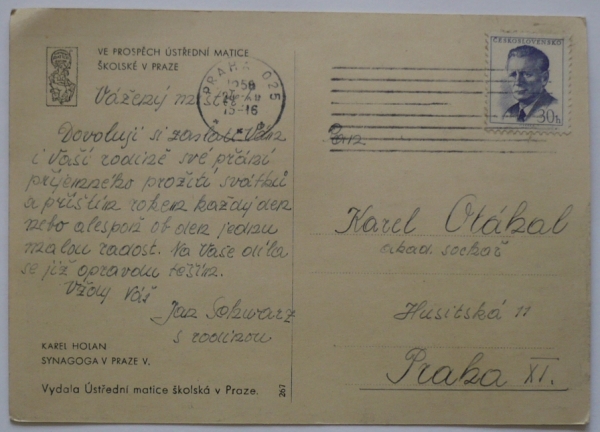 VE PROSPĚCH ÚSTŘEDNÍ MATICE
ŠKOLSKÉ V PRAZE
Vážený
Dovoluji si zaslati Vám
i Vaší rodině své přání
příjemného prožití svátků
a příštím rokem každý den
nebo alespoň ob den jednu
malou radost. Na Vaše díla
se již opravdu těším.
Vždy Váš
Jan Schwarz
s rodinou
KAREL HOLAN
SYNAGOGA V PRAZE V.
Vydala Ústřední matice školská v Praze.
267
PRAHA 025
1958
15-16
ČESKOSLOVENSKO
30h
Karel Otáhal
akad. sochař
Husitská 11
Praha XI.